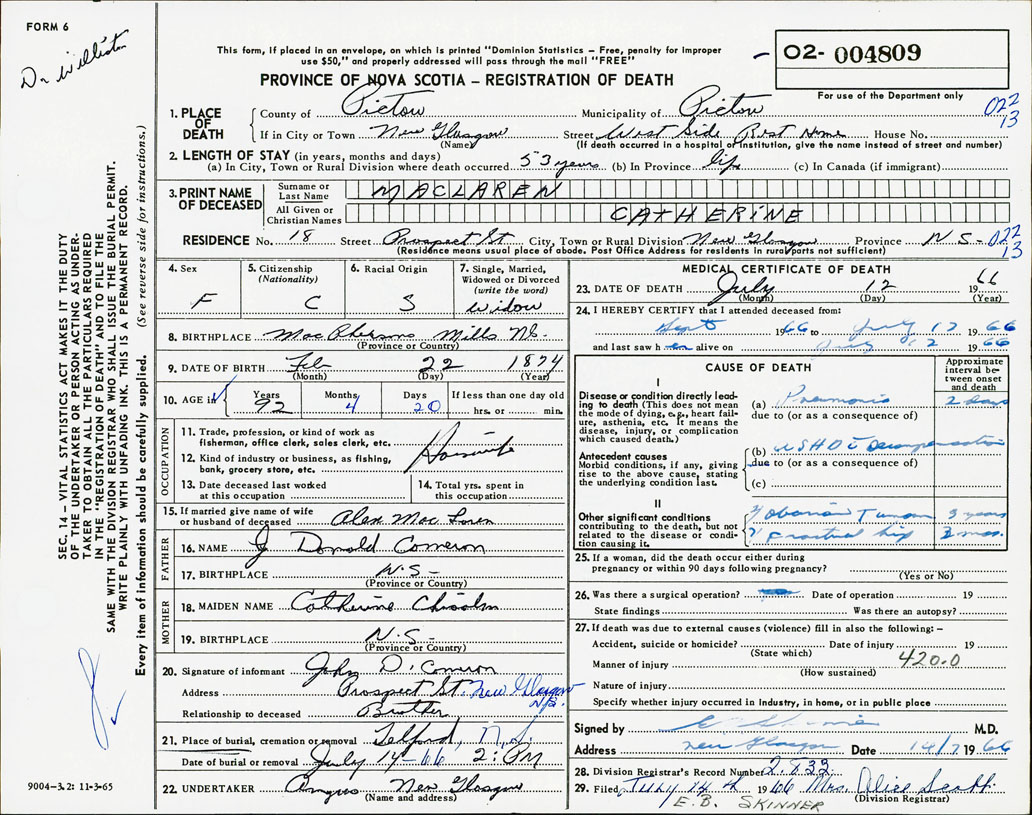 FORM 6
Dr Williston
This form, if placed in an envelope, on which is printed "Dominion Statistics – Free, penalty for improper
use $50," and properly addressed will pass through the mail "FREE"
PROVINCE OF NOVA SCOTIA – REGISTRATION OF DEATH
02- 004809
For use of the Department only
022
13
1. PLACE OF DEATH
County of Pictou Municipality of Pictou
If in City or Town New Glasgow Street West Side Rest Home House No.
(Name) (If death occurred in a hospital or institution, give the name instead of street and number)
2. LENGTH OF STAY (in years, months and days)
(a) In City, Town or Rural Division where death occurred 53 years (b) In Province life (c) In Canada (if immigrant)
3. PRINT NAME OF DECEASED
Surname or Last Name MACLAREN
All Given or Christian Names CATHERINE
RESIDENCE No. 18 Street Prospect St City, Town or Rural Division New Glasgow Province N S - 022
13
(Residence means usual place of abode. Post Office Address for residents in rural parts not sufficient)
4. Sex F
5. Citizenship (Nationality) C
6. Racial Origin S
7. Single, Married, Widowed or Divorced (write the word) widow
8. BIRTHPLACE MacPherson Mills
(Province or Country)
9. DATE OF BIRTH Feb 22 1874
(Month) (Day) (Year)
10. AGE in Years 92 Months 4 Days 20 If less than one day old
hrs. or min.
OCCUPATION
11. Trade, profession, or kind of work as
fisherman, office clerk, sales clerk, etc. Housewife
12. Kind of industry or business, as fishing,
bank, grocery store, etc.
13. Date deceased last worked
at this occupation
14. Total yrs. spent in
this occupation
15. If married give name of wife
or husband of deceased Alex MacLaren
FATHER
16. NAME J Donald Cameron
17. BIRTHPLACE N.S-
(Province or Country)
MOTHER
18. MAIDEN NAME Catherine Chisolm
19. BIRTHPLACE N.S-
(Province or Country)
20. Signature of informant John D. Cameron
Address Prospect St. New Glasgow
N.S.
Relationship to deceased Brother
21. Place of burial, cremation or removal Telford, N.S.
Date of burial or removal July 14-66 2:PM
22. UNDERTAKER Angus New Glasgow
(Name and address)
MEDICAL CERTIFICATE OF DEATH
23. DATE OF DEATH July 12 1966
(Month) (Day) (Year)
24. I HEREBY CERTIFY that I attended deceased from:
Sept 1966 to July 12 1966
and last saw her alive on July 12 1966
CAUSE OF DEATH
Approximate interval between onset and death
I
Disease or condition directly leading to death (This does not mean the mode of dying, e.g., heart failure, asthenia, etc. It means the disease, injury, or complication which caused death.)
(a) Pneumonia 2 days
due to (or as a consequence of)
Antecedent causes
Morbid conditions, if any, giving rise to the above cause, stating the underlying condition last.
(b) ASHD c Decompensation
due to (or as a consequence of)
(c)
II
Other significant conditions contributing to the death, but not related to the disease or condition causing it.
1 Ovarian Tumor 3 years
2 Fractured hip 3 mos.
25. If a woman, did the death occur either during
pregnancy or within 90 days following pregnancy?
(Yes or No)
26. Was there a surgical operation? Date of operation 19
State findings Was there an autopsy?
27. If death was due to external causes (violence) fill in also the following: –
Accident, suicide or homicide? Date of injury 19
(State which)
Manner of injury 420.0
(How sustained)
Nature of injury
Specify whether injury occurred in Industry, in home, or in public place
Signed by M.D.
Address New Glasgow Date 14/7 1966
28. Division Registrar's Record Number 2833
29. Filed July 14 1966 Mrs. Alice Scott
(Division Registrar)
E.B. SKINNER
SEC. 14 – VITAL STATISTICS ACT MAKES IT THE DUTY
OF THE UNDERTAKER OR PERSON ACTING AS UNDER-
TAKER TO OBTAIN ALL THE PARTICULARS REQUIRED
IN THE "REGISTRATION OF DEATH" AND TO FILE THE
SAME WITH THE DIVISION REGISTRAR WHO SHALL ISSUE THE BURIAL PERMIT.
WRITE PLAINLY WITH UNFADING INK. THIS IS A PERMANENT RECORD.
Every item of information should be carefully supplied. (See reverse side for instructions.)
9004-3.2: 11-3-65